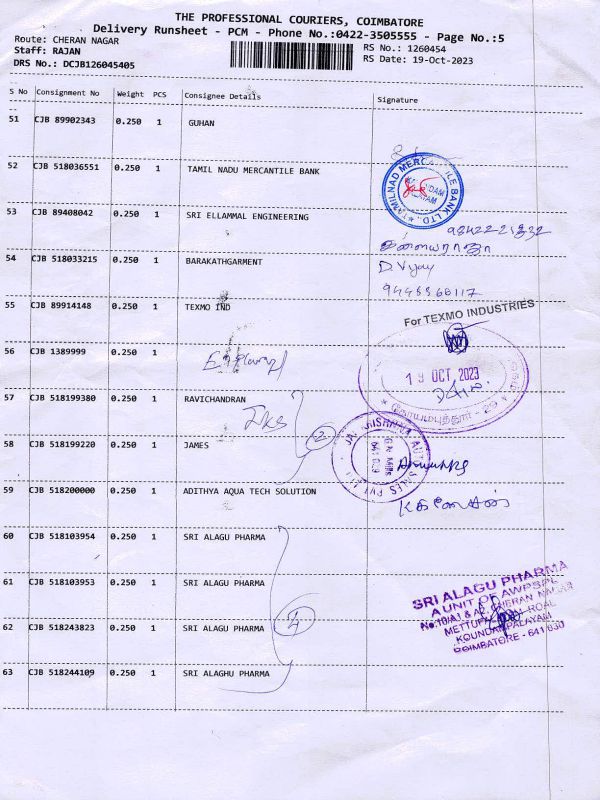 THE PROFESSIONAL COURIERS, COIMBATORE
Delivery Runsheet - PCM - Phone No.:0422-3505555 - Page No.:5
Route: CHERAN NAGAR
RS No.: 1260454
Staff: RAJAN
RS Date: 19-Oct-2023
DRS No.: DCJB126045405
S No Consignment No Weight PCS Consignee Details Signature
51 CJB 89902343 0.250 1 GUHAN
52 CJB 518036551 0.250 1 TAMIL NADU MERCANTILE BANK
TAMILNAD MERCANTILE BANK LTD.
53 CJB 89408042 0.250 1 SRI ELLAMMAL ENGINEERING
இளையராஜா
54 CJB 518033215 0.250 1 BARAKATHGARMENT
D. Vijay
55 CJB 89914148 0.250 1 TEXMO IND
For TEXMO INDUSTRIES
56 CJB 1389999 0.250 1
19 OCT 2023
கோயமுத்தூர் - 29
57 CJB 518199380 0.250 1 RAVICHANDRAN
2
58 CJB 518199220 0.250 1 JAMES
59 CJB 518200000 0.250 1 ADITHYA AQUA TECH SOLUTION
60 CJB 518103954 0.250 1 SRI ALAGU PHARMA
61 CJB 518103953 0.250 1 SRI ALAGU PHARMA
SRI ALAGU PHARMA
A UNIT OF AWPSPL
CHERAN NAGAR
KOUNDANPALAYAM
COIMBATORE - 641 030
62 CJB 518243823 0.250 1 SRI ALAGU PHARMA
63 CJB 518244109 0.250 1 SRI ALAGHU PHARMA